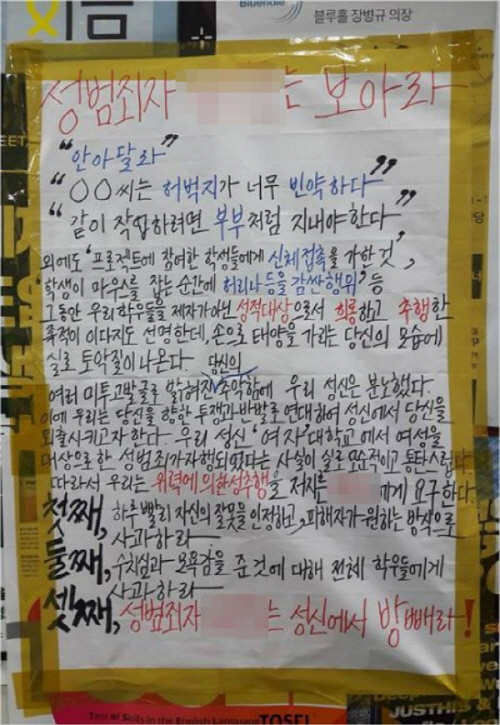 Bluehole
블루홀 장병규 의장
성범죄자 는 보아라
"안아달라"
"○○씨는 허벅지가 너무 빈약하다"
"같이 작업하려면 부부처럼 지내야한다"
외에도 '프로젝트에 참여한 학생들에게 신체접촉을 가한 것',
'학생이 마우스를 잡는 순간에 허리나 등을 감싼 행위' 등
그동안 우리 학우들을 제자가 아닌 성적대상으로서 희롱하고 추행한
족적이 이다지도 선명한데, 손으로 태양을 가리는 당신의 모습에
실로 토악질이 나온다.
여러 미투고발글로 밝혀진 당신의 추악함에 우리 성신은 분노했다.
이에 우리는 당신을 향한 투쟁과 반발로 연대하여 성신에서 당신을
퇴출시키고자 한다. 우리 성신 '여자'대학교에서 여성을
대상으로 한 성범죄가 자행되었다는 사실이 실로 모순적이고 통탄스럽다.
따라서 우리는 위력에 의한 성추행을 저지른 에게 요구한다.
첫째, 하루 빨리 자신의 잘못을 인정하고, 피해자가 원하는 방식으로
사과하라
둘째, 수치심과 모욕감을 준 것에 대해 전체 학우들에게
사과하라
셋째, 성범죄자 는 성신에서 방빼라!
Test of Skills in the English Language TOSEL
JUSTHIS &